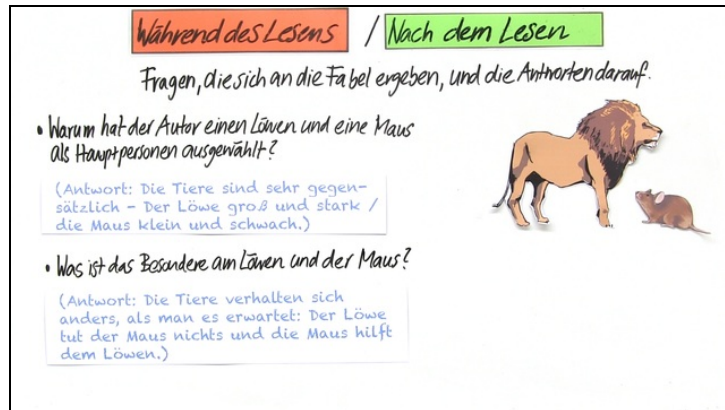 Während des Lesens / Nach dem Lesen
Fragen, die sich an die Fabel ergeben, und die Antworten darauf.
• Warum hat der Autor einen Löwen und eine Maus
als Hauptpersonen ausgewählt?
(Antwort: Die Tiere sind sehr gegen-
sätzlich – Der Löwe groß und stark /
die Maus klein und schwach.)
• Was ist das Besondere am Löwen und der Maus?
(Antwort: Die Tiere verhalten sich
anders, als man es erwartet: Der Löwe
tut der Maus nichts und die Maus hilft
dem Löwen.)